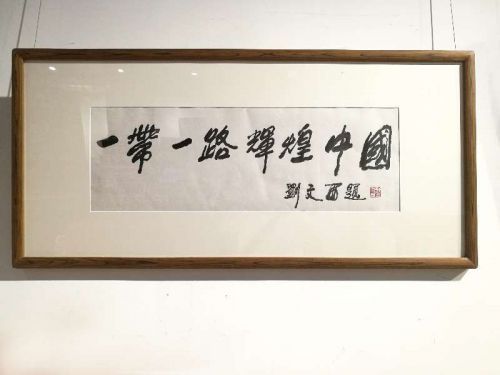 一帶一路輝煌中國
劉文西題